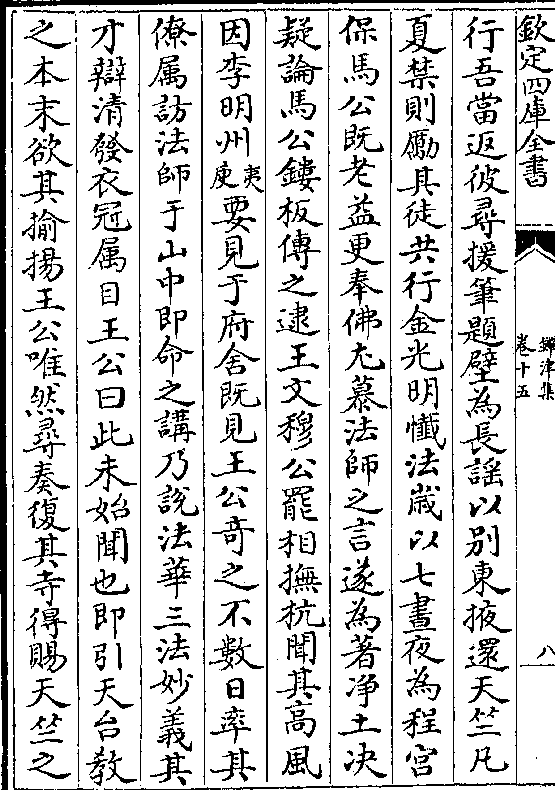 欽定四庫全書
鐔津集
卷十五
八
行吾當返彼尋援筆題壁為長謡以别東掖還天竺凡
夏禁則勵其徒共行金光明懺法嵗以七晝夜為程宫
保馬公既老益更奉佛尤慕法師之言遂為著净土决
疑論馬公鏤板傳之逮王文穆公罷相撫杭聞其高風
因李明州夷庚要見于府舍既見王公竒之不數日率其
僚属訪法師于山中即命之講乃說法華三法妙義其
才辯清發衣冠属目王公曰此未始聞也即引天台教
之本末欲其揄揚王公唯然尋奏復其寺得賜天竺之